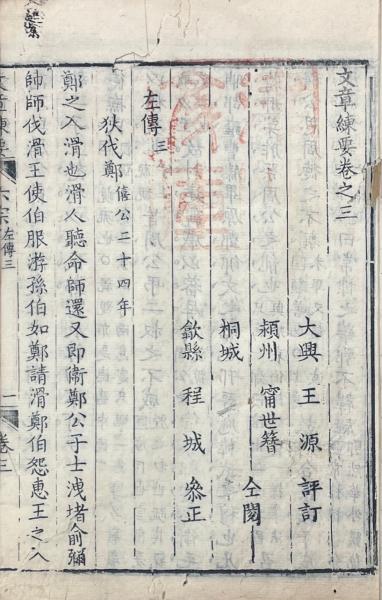 文章練要卷之三
大興 王源 評訂
潁州 甯世簪
桐城
仝閱
歙縣 程城 叅正
左傳三
狄伐鄭 僖公二十四年
鄭之入滑也滑人聽命師還又即衞鄭公子士洩堵俞彌
帥師伐滑王使伯服游孫伯如鄭請滑鄭伯怨惠王之入
文章練要
六宗
左傳三
一
卷三